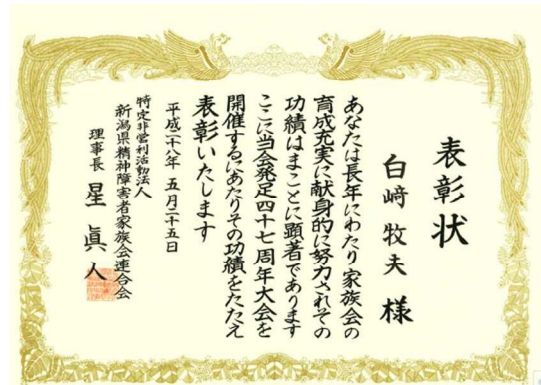 表彰状
白﨑牧夫様
あなたは長年にわたり家族会の
育成充実に献身的に努力されその
功績はまことに顕著であります
ここに当会発足四十七周年大会を
開催するにあたりその功績をたたえ
表彰いたします
平成二十八年 五月二十五日
特定非営利活動法人
新潟県精神障害者家族会連合会
理事長 星 眞人